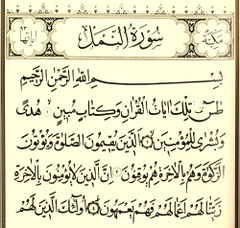 مكية سُورَةُ النَّمْلِ آياتها
بِسْمِ اللَّهِ الرَّحْمَٰنِ الرَّحِيمِ
طسٓ تِلْكَ ءَايَاتُ الْقُرْءَانِ وَكِتَابٍ مُبِينٍ هُدًى
وَبُشْرَىٰ لِلْمُؤْمِنِينَ الَّذِينَ يُقِيمُونَ الصَّلَوٰةَ وَيُؤْتُونَ
الزَّكَوٰةَ وَهُمْ بِالْآخِرَةِ هُمْ يُوقِنُونَ إِنَّ الَّذِينَ لَا يُؤْمِنُونَ بِالْآخِرَةِ
زَيَّنَّا لَهُمْ أَعْمَالَهُمْ فَهُمْ يَعْمَهُونَ أُولَٰئِكَ الَّذِينَ لَهُمْ